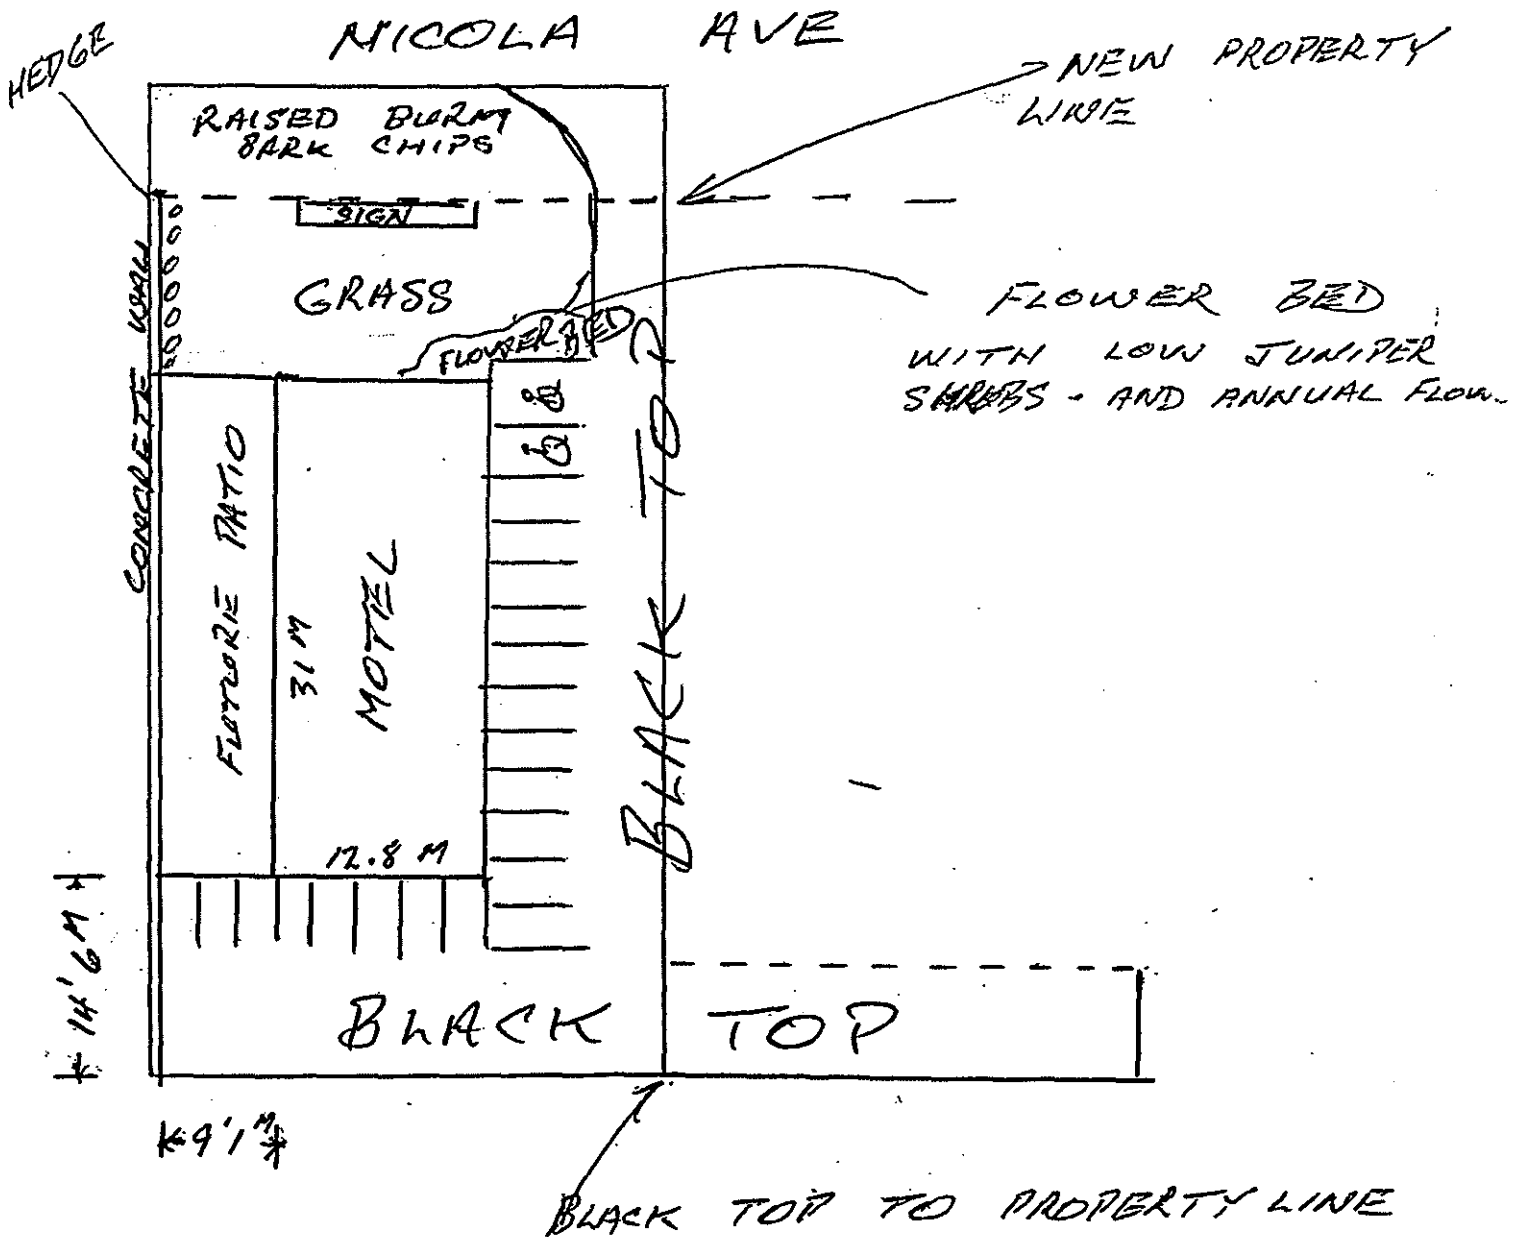 NICOLA AVE
HEDGE
NEW PROPERTY
LINE
RAISED BURM
BARK CHIPS
SIGN
GRASS
CONCRETE WALL
FLOWER BED
FLOWER BED
WITH LOW JUNIPER
SHRUBS - AND ANNUAL FLOW.
PATIO
31 M
MOTEL
12.8 M
BLACK TOP
14'6 M
BLACK TOP
9'1 M
BLACK TOP TO PROPERTY LINE